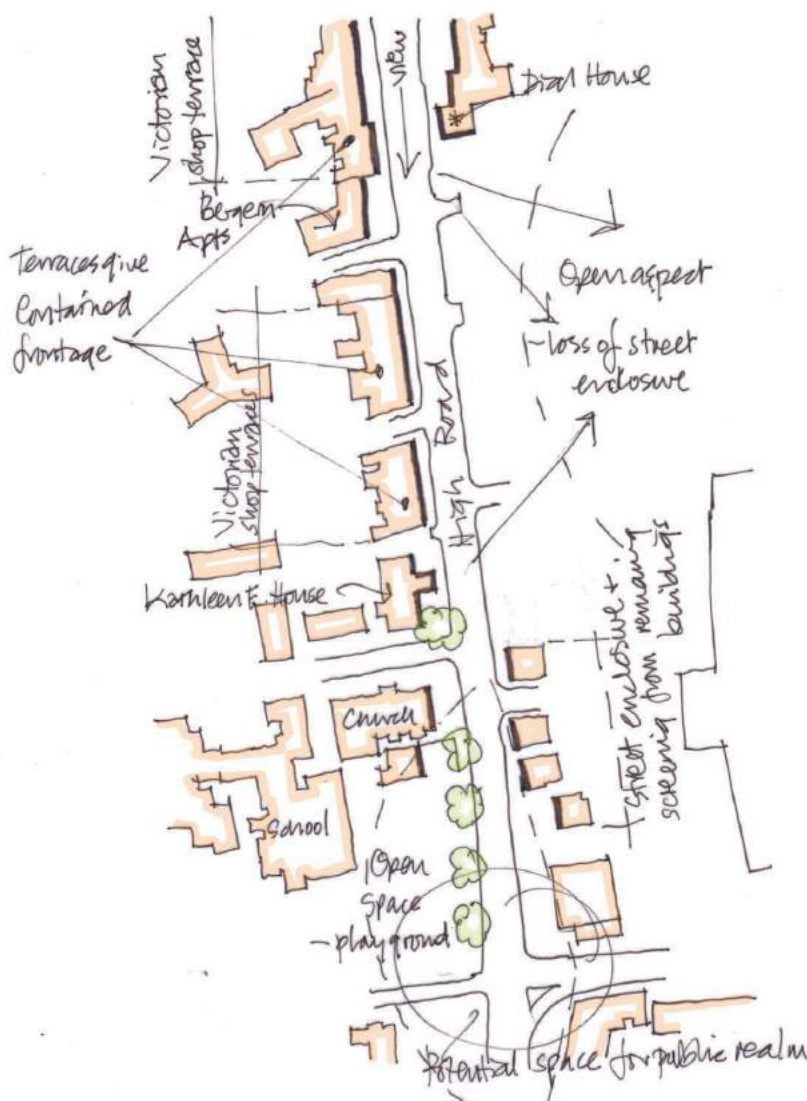 Victorian
shop terrace
View
Dial House
Bergen
Apts
Terraces give
contained
frontage
Open aspect
- loss of street
enclosure
High Road
Victorian
shop terraces
Kathleen F. House
Street enclosure +
screening from remaining
buildings
Church
School
Open
Space
- playgrond
Potential space for public realm